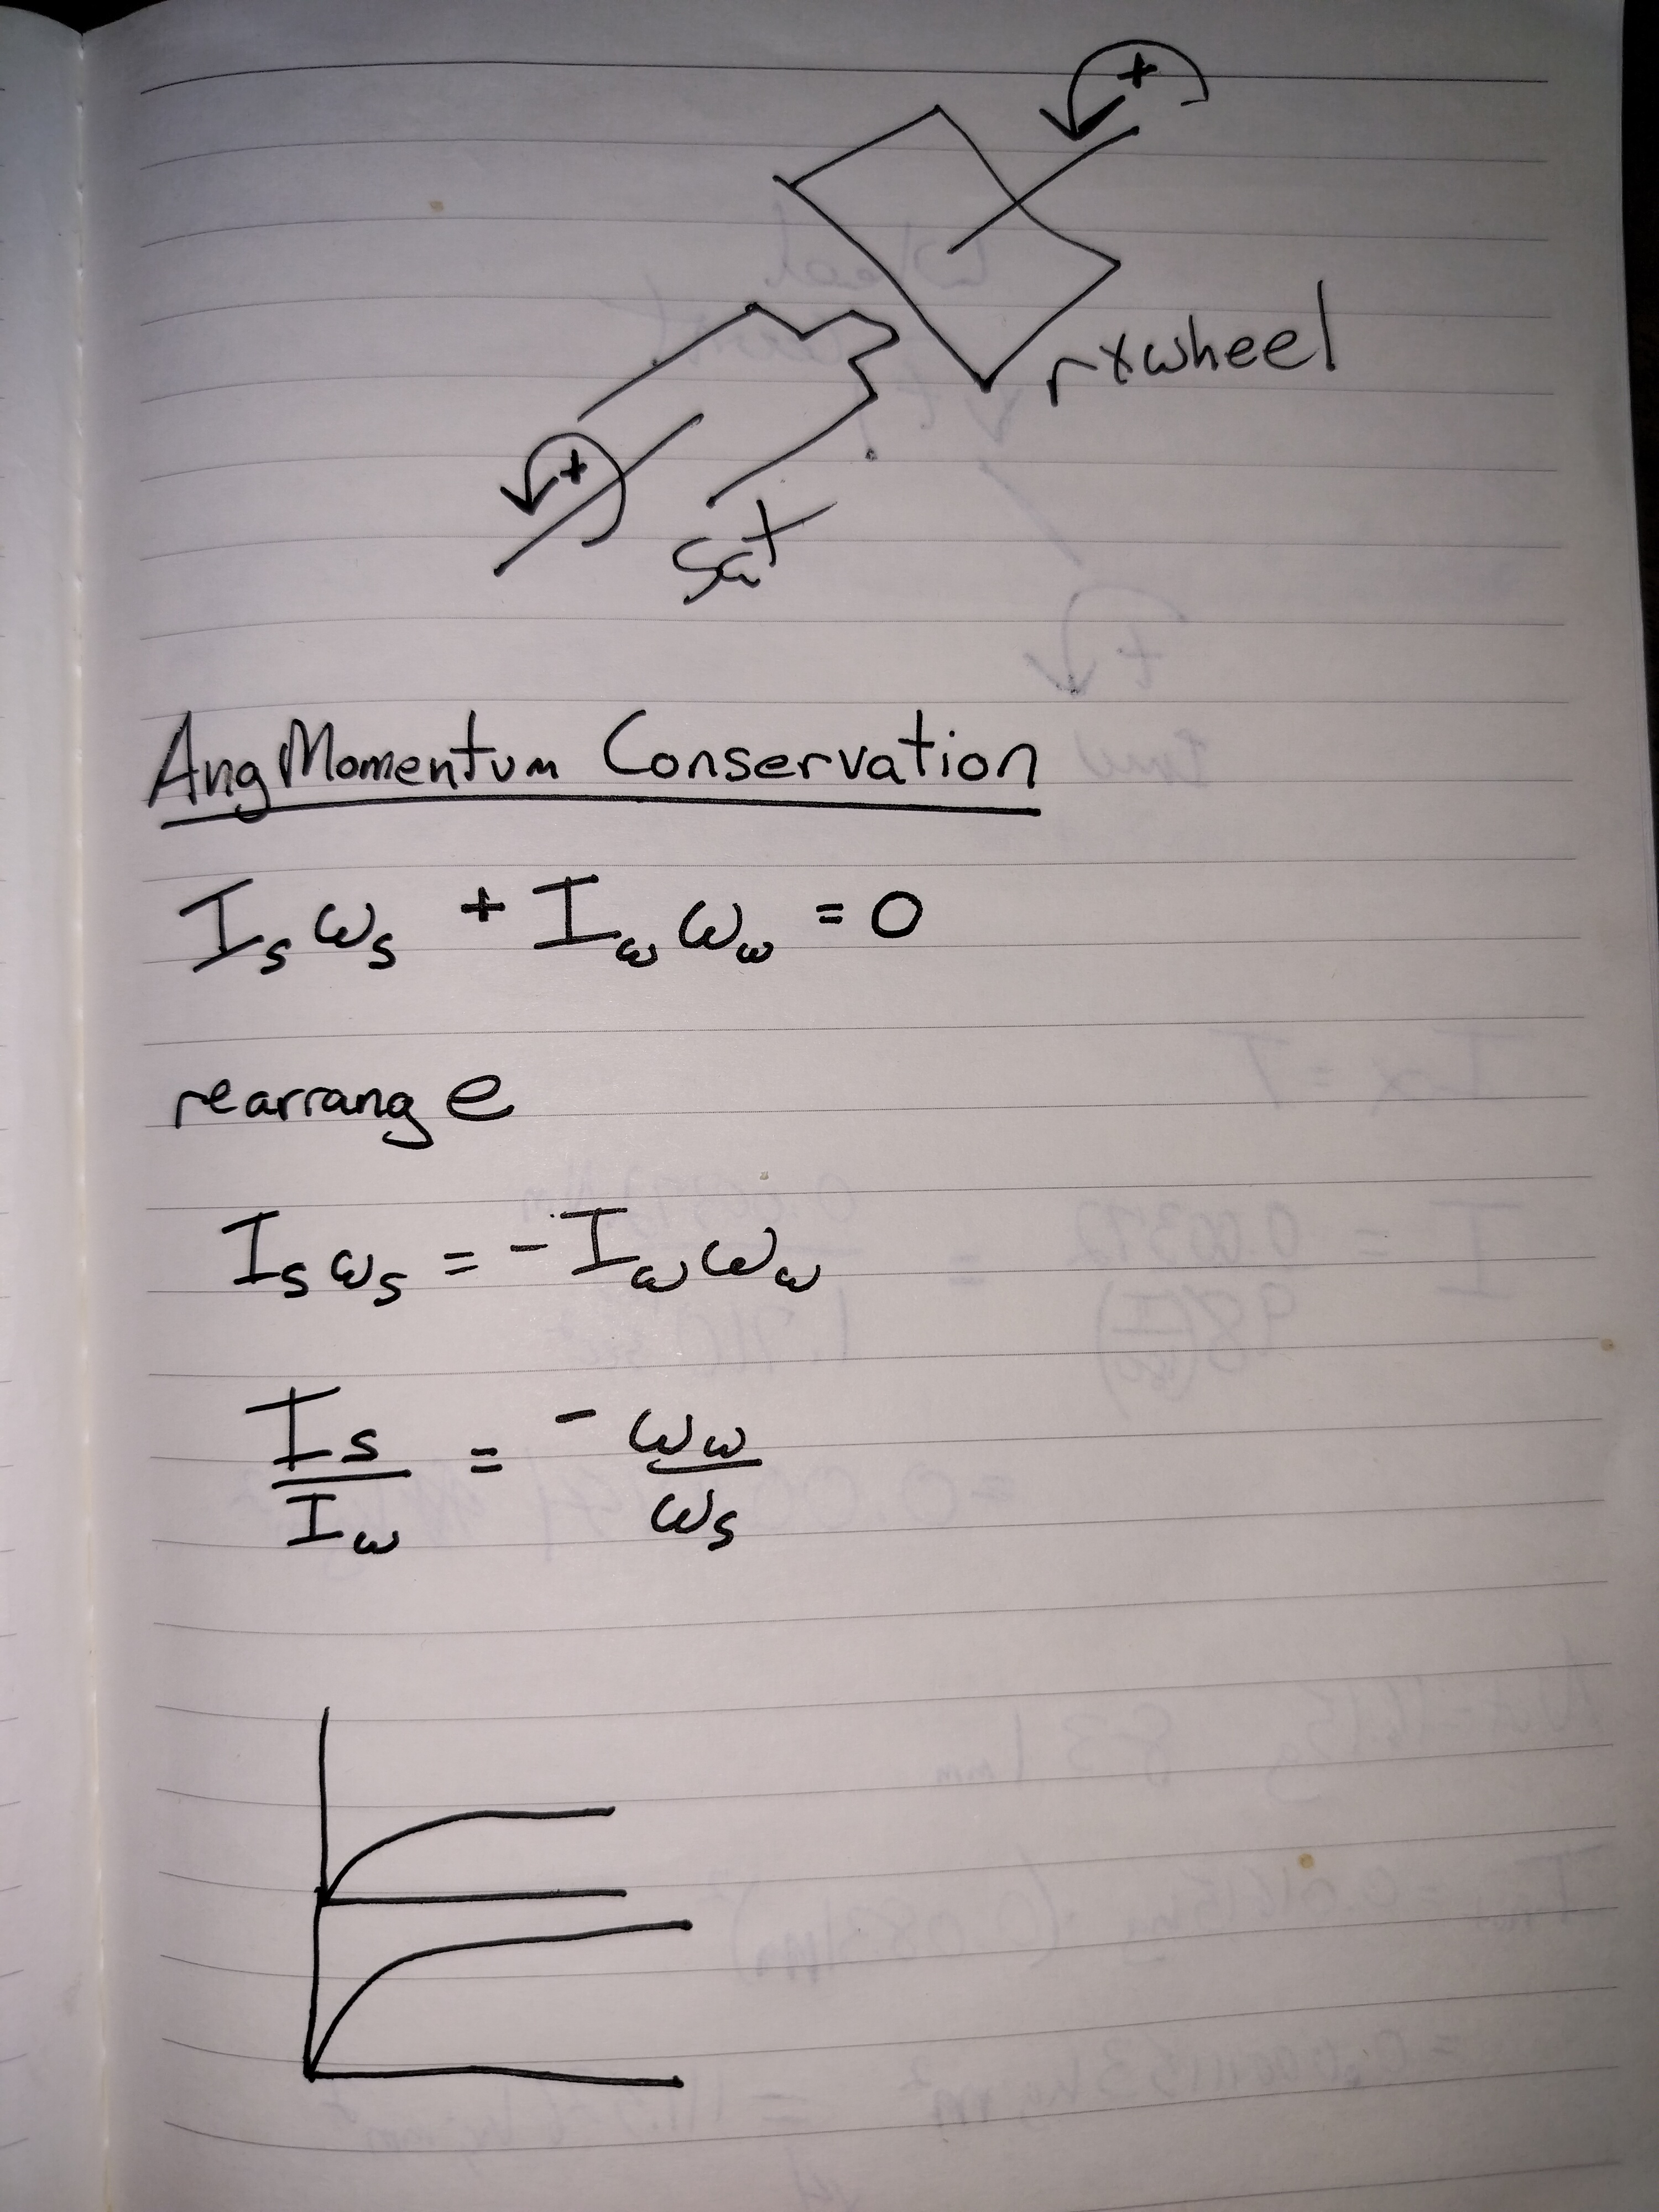 +
rxwheel
+
Sat
Ang Momentum Conservation
I_s ω_s + I_ω ω_ω = 0
rearrange
I_s ω_s = - I_ω ω_ω
I_s / I_ω = - ω_ω / ω_s